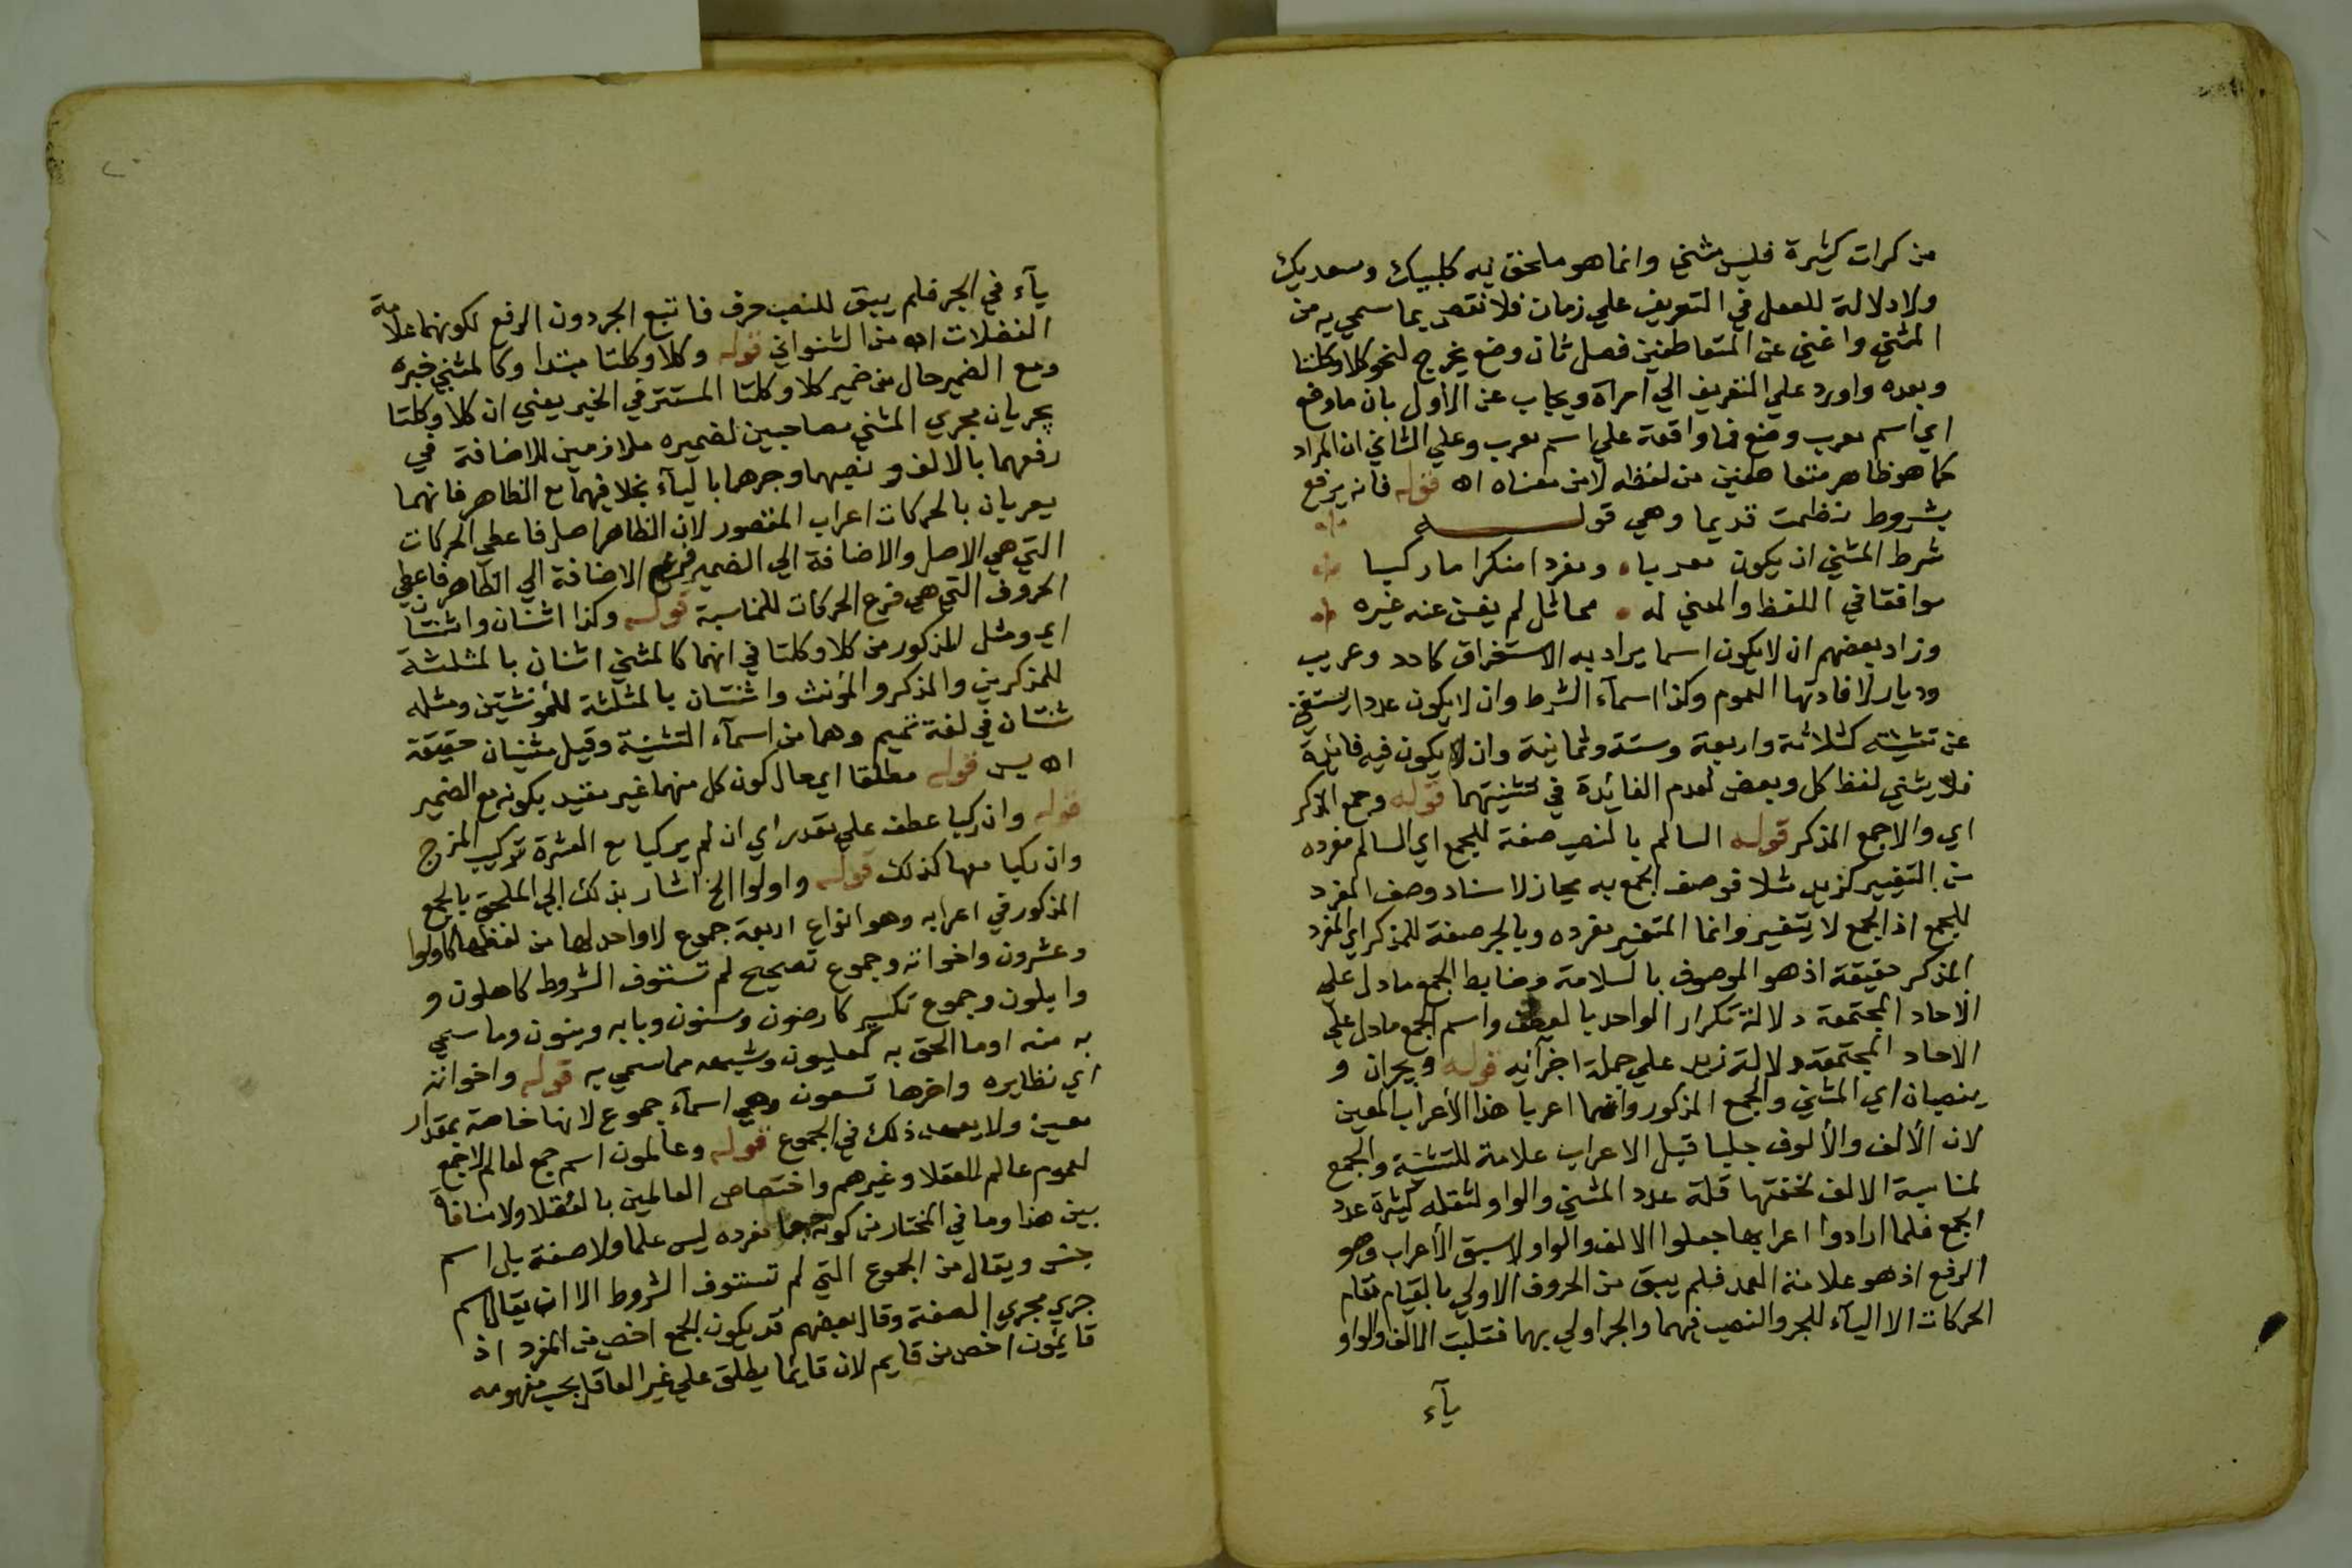 من كرات كثيرة فليس مثني وانما هو ملحق به كلبيك وسعديك
ولا دلالة للفعل في التعريف علي زمان فلا نقص بما سمي به من
المثني واغني عن المتعاطفين فصل ثان وضع يخرج لنحو كلا وكلتا
وبعده واورد علي التعريف الي امراة ويجاب عن الاول بان ما وضع
اي اسم معرب وضع فما واقعة علي اسم معرب وعلي الثاني ان المراد
كما هو ظاهر متعاطفين من لفظه لا من معناه اه قوله فانه يرفع
بشروط نظمت قديما وهي قولـــه
شرط المثني ان يكون معربا ومفردا منكرا ما ركبا
موافقا في اللفظ والمعني له مماثل لم يغن عنه غيره
وزاد بعضهم ان لا يكون اسما يراد به الاستغراق كاحد وعريب
وديار لافادتها العموم وكذا اسمآء الشرط وان لا يكون عددا يستغني
عن تثنيته كثلاثة واربعة وستة وثمانية وان لا يكون فيه فائدة
فلا يثني لفظ كل وبعض لعدم الفائدة في تثنيتهما قوله وجمع المذكر
اي والا جمع المذكر قوله السالم بالنصب صفة للجمع اي السالم مفرده
من التغيير كزيد مثلا فوصف الجمع به مجاز لاسناد وصف المفرد
للجمع اذ الجمع لا يتغير وانما المتغير مفرده وبالجر صفة للمذكر اي المفرد
المذكر حقيقة اذ هو الموصوف بالسلامة وضابط الجمع ما دل علي
الاحاد المجتمعة دلالة تكرار الواحد بالعطف واسم الجمع ما دل علي
الاحاد المجتمعة دلالة زيد علي جملة اجزآئه قوله ويجران و
ينصبان اي المثني والجمع المذكور وانما اعربا هذا الأعراب المعين
لان الألف والألوف جلبا قبل الاعراب علامة للتثنية والجمع
لمناسبة الالف لخفتها قلة عدد المثني والواو لثقله كثرة عدد
الجمع فلما ارادوا اعرابها جعلوا الالف والواو لاسبق الأعراب وهو
الرفع اذ هو علامة العمد فلم يبق من الحروف الاولي بالقيام مقام
الحركات الا اليآء للجر والنصب فيهما والجر اولي بهما فقلبت الالف والواو
يآء
يآء في الجر فلم يبق للنصب حرف فاتبع الجر دون الرفع لكونهما علامة
الفضلات اه من الشنواني قوله وكلا وكلتا مبتدا وكالمثني خبره
ومع الضمير حال من ضمير كلا وكلتا المستتر في الخبر يعني ان كلا وكلتا
يجريان مجري المثني مصاحبين لضميره ملازمين للاضافة في
رفعهما بالالف ونصبهما وجرهما باليآء بخلافهما مع الظاهر فانهما
يعربان بالحركات اعراب المقصور لان الظاهر اصل فاعطي الحركات
التي هي الاصل والاضافة الي الضمير فرع الاضافة الي الظاهر فاعطي
الحروف التي هي فرع الحركات للمناسبة قوله وكذا اثنان واثنتان
اي ومثل المذكور من كلا وكلتا في انهما كالمثني اثنان بالمثلثة
للمذكرين والمذكر والمؤنث واثنتان بالمثلثة للمؤنثتين ومثله
ثنتان في لغة تميم وهما من اسمآء التثنية وقيل مثنيان حقيقة
اه يس قوله مطلقا اي حال كون كل منهما غير مقيد بكونه مع الضمير
قوله وان ركبا عطف علي مقدر اي ان لم يركبا مع العشرة تركيب المزج
وان ركبا معها كذلك قوله واولوا الخ اشار بذلك الي الملحق بالجمع
المذكور في اعرابه وهو انواع اربعة جموع لا واحد لها من لفظها كاولوا
وعشرون واخواته وجموع تصحيح لم تستوف الشروط كاهلون و
وابلون وجموع تكسير كارضون وسنون وبابه وبنون وما سمي
به منه او ما الحق به كعليون وشبهه مما سمي به قوله واخواته
اي نظايره واخرها تسعون وهي اسمآء جموع لانها خاصة بمقدار
معين ولا يعهد ذلك في الجموع قوله وعالمون اسم جمع لعالم لا جمع
لعموم عالم للعقلا وغيرهم واختصاص العالمين بالعقلا ولا منافاة
بين هذا وما في المختار من كونه جمعا مفرده ليس علما ولا صفة بل اسم
جنس ويقال من الجموع التي لم تستوف الشروط الا ان يقال اسم
جري مجري الصفة وقال بعضهم قد يكون الجمع اخص من المفرد اذ
قايمون اخص من قايم لان قايما يطلق علي غير العاقل بحسب مفهومه